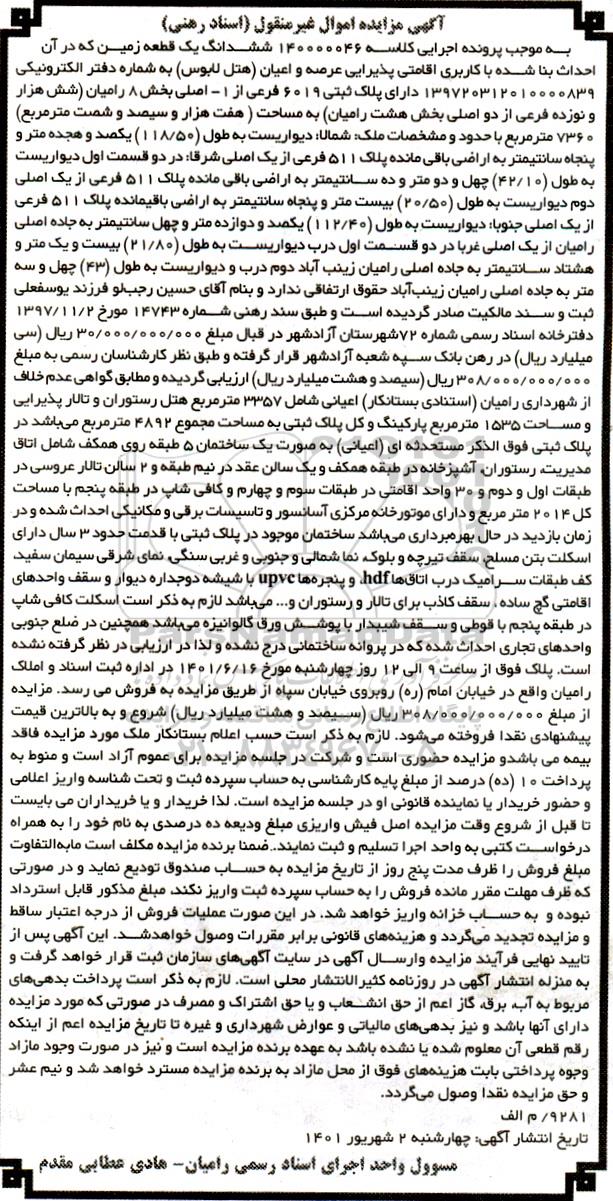 آگهی مزایده اموال غیرمنقول (اسناد رهنی)
به موجب پرونده اجرایی کلاسه ۱۴۰۰۰۰۰۴۶ ششدانگ یک قطعه زمین که در آن
احداث بنا شده با کاربری اقامتی پذیرایی عرصه و اعیان (هتل لابوس) به شماره دفتر الکترونیکی
۱۳۹۷۲۰۳۱۲۰۱۰۰۰۰۸۳۹ دارای پلاک ثبتی ۶۰۱۹ فرعی از ۱- اصلی بخش ۸ رامیان (شش هزار
و نوزده فرعی از دو اصلی بخش هشت رامیان) به مساحت ( هفت هزار و سیصد و شصت مترمربع)
۷۳۶۰ مترمربع با حدود و مشخصات ملک: شمالا: دیواریست به طول (۱۱۸/۵۰) یکصد و هجده متر و
پنجاه سانتیمتر به اراضی باقی مانده پلاک ۵۱۱ فرعی از یک اصلی شرقا: در دو قسمت اول دیواریست
به طول (۴۲/۱۰) چهل و دو متر و ده سانتیمتر به اراضی باقی مانده پلاک ۵۱۱ فرعی از یک اصلی
دوم دیواریست به طول (۲۰/۵۰) بیست متر و پنجاه سانتیمتر به اراضی باقیمانده پلاک ۵۱۱ فرعی
از یک اصلی جنوبا: دیواریست به طول (۱۱۲/۴۰) یکصد و دوازده متر و چهل سانتیمتر به جاده اصلی
رامیان از یک اصلی غربا در دو قسمت اول درب دیواریست به طول (۲۱/۸۰) بیست و یک متر و
هشتاد سانتیمتر به جاده اصلی رامیان زینب آباد دوم درب و دیواریست به طول (۴۳) چهل و سه
متر به جاده اصلی رامیان زینب‌آباد حقوق ارتفاقی ندارد و بنام آقای حسین رجب‌لو فرزند یوسفعلی
ثبت و سند مالکیت صادر گردیده است و طبق سند رهنی شماره ۱۴۷۴۳ مورخ ۱۳۹۷/۱۱/۲
دفترخانه اسناد رسمی شماره ۷۲ شهرستان آزادشهر در قبال مبلغ ۳۰/۰۰۰/۰۰۰/۰۰۰ ریال (سی
میلیارد ریال) در رهن بانک سپه شعبه آزادشهر قرار گرفته و طبق نظر کارشناسان رسمی به مبلغ
۳۰۸/۰۰۰/۰۰۰/۰۰۰ ریال (سیصد و هشت میلیارد ریال) ارزیابی گردیده و مطابق گواهی عدم خلاف
از شهرداری رامیان (استنادی بستانکار) اعیانی شامل ۳۳۵۷ مترمربع هتل رستوران و تالار پذیرایی
و مساحت ۱۵۳۵ مترمربع پارکینگ و کل پلاک ثبتی به مساحت مجموع ۴۸۹۲ مترمربع می‌باشد در
پلاک ثبتی فوق الذکر مستحدثه ای (اعیانی) به صورت یک ساختمان ۵ طبقه روی همکف شامل اتاق
مدیریت، رستوران، آشپزخانه در طبقه همکف و یک سالن عقد در نیم طبقه و ۲ سالن تالار عروسی در
طبقات اول و دوم و ۳۰ واحد اقامتی در طبقات سوم و چهارم و کافی شاپ در طبقه پنجم با مساحت
کل ۲۰۱۴ متر مربع و دارای موتورخانه مرکزی آسانسور و تاسیسات برقی و مکانیکی احداث شده و در
زمان بازدید در حال بهره‌برداری می‌باشد ساختمان موجود در پلاک ثبتی با قدمت حدود ۳ سال دارای
اسکلت بتن مسلح، سقف تیرچه و بلوک، نما شمالی و جنوبی و غربی سنگی، نمای شرقی سیمان سفید،
کف طبقات سرامیک درب اتاق‌ها hdf، و پنجره‌ها upvc با شیشه دوجداره دیوار و سقف واحدهای
اقامتی گچ ساده ، سقف کاذب برای تالار و رستوران و... می‌باشد لازم به ذکر است اسکلت کافی شاپ
در طبقه پنجم با قوطی و سقف شیبدار با پوشش ورق گالوانیزه می‌باشد همچنین در ضلع جنوبی
واحدهای تجاری احداث شده که در پروانه ساختمانی درج نشده و لذا در ارزیابی در نظر گرفته نشده
است. پلاک فوق از ساعت ۹ الی ۱۲ روز چهارشنبه مورخ ۱۴۰۱/۶/۱۶ در اداره ثبت اسناد و املاک
رامیان واقع در خیابان امام (ره) روبروی خیابان سپاه از طریق مزایده به فروش می رسد. مزایده
از مبلغ ۳۰۸/۰۰۰/۰۰۰/۰۰۰ ریال (سیصد و هشت میلیارد ریال) شروع و به بالاترین قیمت
پیشنهادی نقدا فروخته می‌شود. لازم به ذکر است حسب اعلام بستانکار ملک مورد مزایده فاقد
بیمه می باشدو مزایده حضوری است و شرکت در جلسه مزایده برای عموم آزاد است و منوط به
پرداخت ۱۰ (ده) درصد از مبلغ پایه کارشناسی به حساب سپرده ثبت و تحت شناسه واریز اعلامی
و حضور خریدار یا نماینده قانونی او در جلسه مزایده است. لذا خریدار و یا خریداران می بایست
تا قبل از شروع وقت مزایده اصل فیش واریزی مبلغ ودیعه ده درصدی به نام خود را به همراه
درخواست کتبی به واحد اجرا تسلیم و ثبت نمایند. ضمنا برنده مزایده مکلف است مابه‌التفاوت
مبلغ فروش را ظرف مدت پنج روز از تاریخ مزایده به حساب صندوق تودیع نماید و در صورتی
که ظرف مهلت مقرر مانده فروش را به حساب سپرده ثبت واریز نکند، مبلغ مذکور قابل استرداد
نبوده و به حساب خزانه واریز خواهد شد. در این صورت عملیات فروش از درجه اعتبار ساقط
و مزایده تجدید می‌گردد و هزینه‌های قانونی برابر مقررات وصول خواهدشد. این آگهی پس از
تایید نهایی فرآیند مزایده وارسال آگهی در سایت آگهی‌های سازمان ثبت قرار خواهد گرفت و
به منزله انتشار آگهی در روزنامه کثیرالانتشار محلی است. لازم به ذکر است پرداخت بدهی‌های
مربوط به آب، برق، گاز اعم از حق انشعاب و یا حق اشتراک و مصرف در صورتی که مورد مزایده
دارای آنها باشد و نیز بدهی‌های مالیاتی و عوارض شهرداری و غیره تا تاریخ مزایده اعم از اینکه
رقم قطعی آن معلوم شده یا نشده باشد به عهده برنده مزایده است و نیز در صورت وجود مازاد
وجوه پرداختی بابت هزینه‌های فوق از محل مازاد به برنده مزایده مسترد خواهد شد و نیم عشر
و حق مزایده نقدا وصول می‌گردد.
۹۲۸۱/ م الف
تاریخ انتشار آگهی: چهارشنبه ۲ شهریور ۱۴۰۱
مسوول واحد اجرای اسناد رسمی رامیان- هادی عطایی مقدم